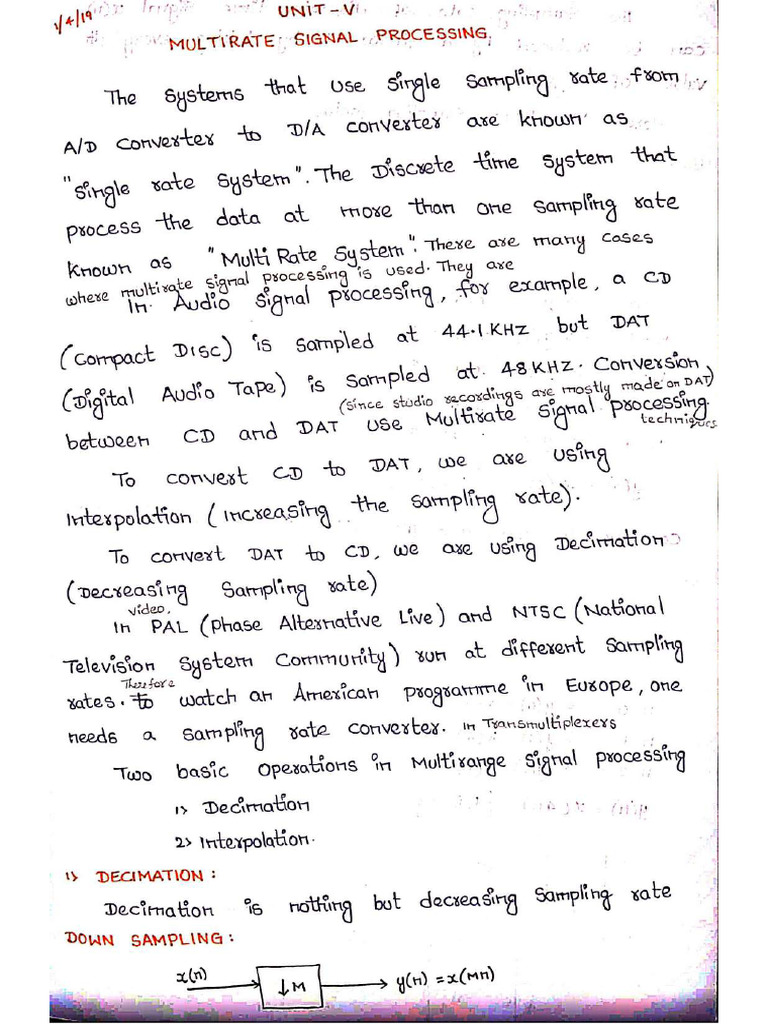 1/4/19
UNIT-V
MULTIRATE SIGNAL PROCESSING
The systems that use single sampling rate from
A/D converter to D/A converter are known as
"single rate system". The Discrete time system that
process the data at more than one sampling rate
known as "Multi Rate System". There are many cases
where multirate signal processing is used. They are
In Audio signal processing, for example, a CD
(Compact Disc) is sampled at 44.1 KHZ but DAT
(Digital Audio Tape) is sampled at 48 KHZ. Conversion
(since studio recordings are mostly made on DAT)
between CD and DAT use Multirate signal processing
techniques
To convert CD to DAT, we are using
Interpolation (increasing the sampling rate).
To convert DAT to CD, we are using Decimation
(Decreasing Sampling rate)
video,
In PAL (phase Alternative Live) and NTSC (National
Television System Community) run at different sampling
rates. Therefore to watch an American programme in Europe, one
needs a sampling rate converter. in Transmultiplexers
Two basic operations in Multirange signal processing
1> Decimation
2> Interpolation.
1> DECIMATION:
Decimation is nothing but decreasing sampling rate
DOWN SAMPLING:
x(n) ↓M y(n) = x(Mn)